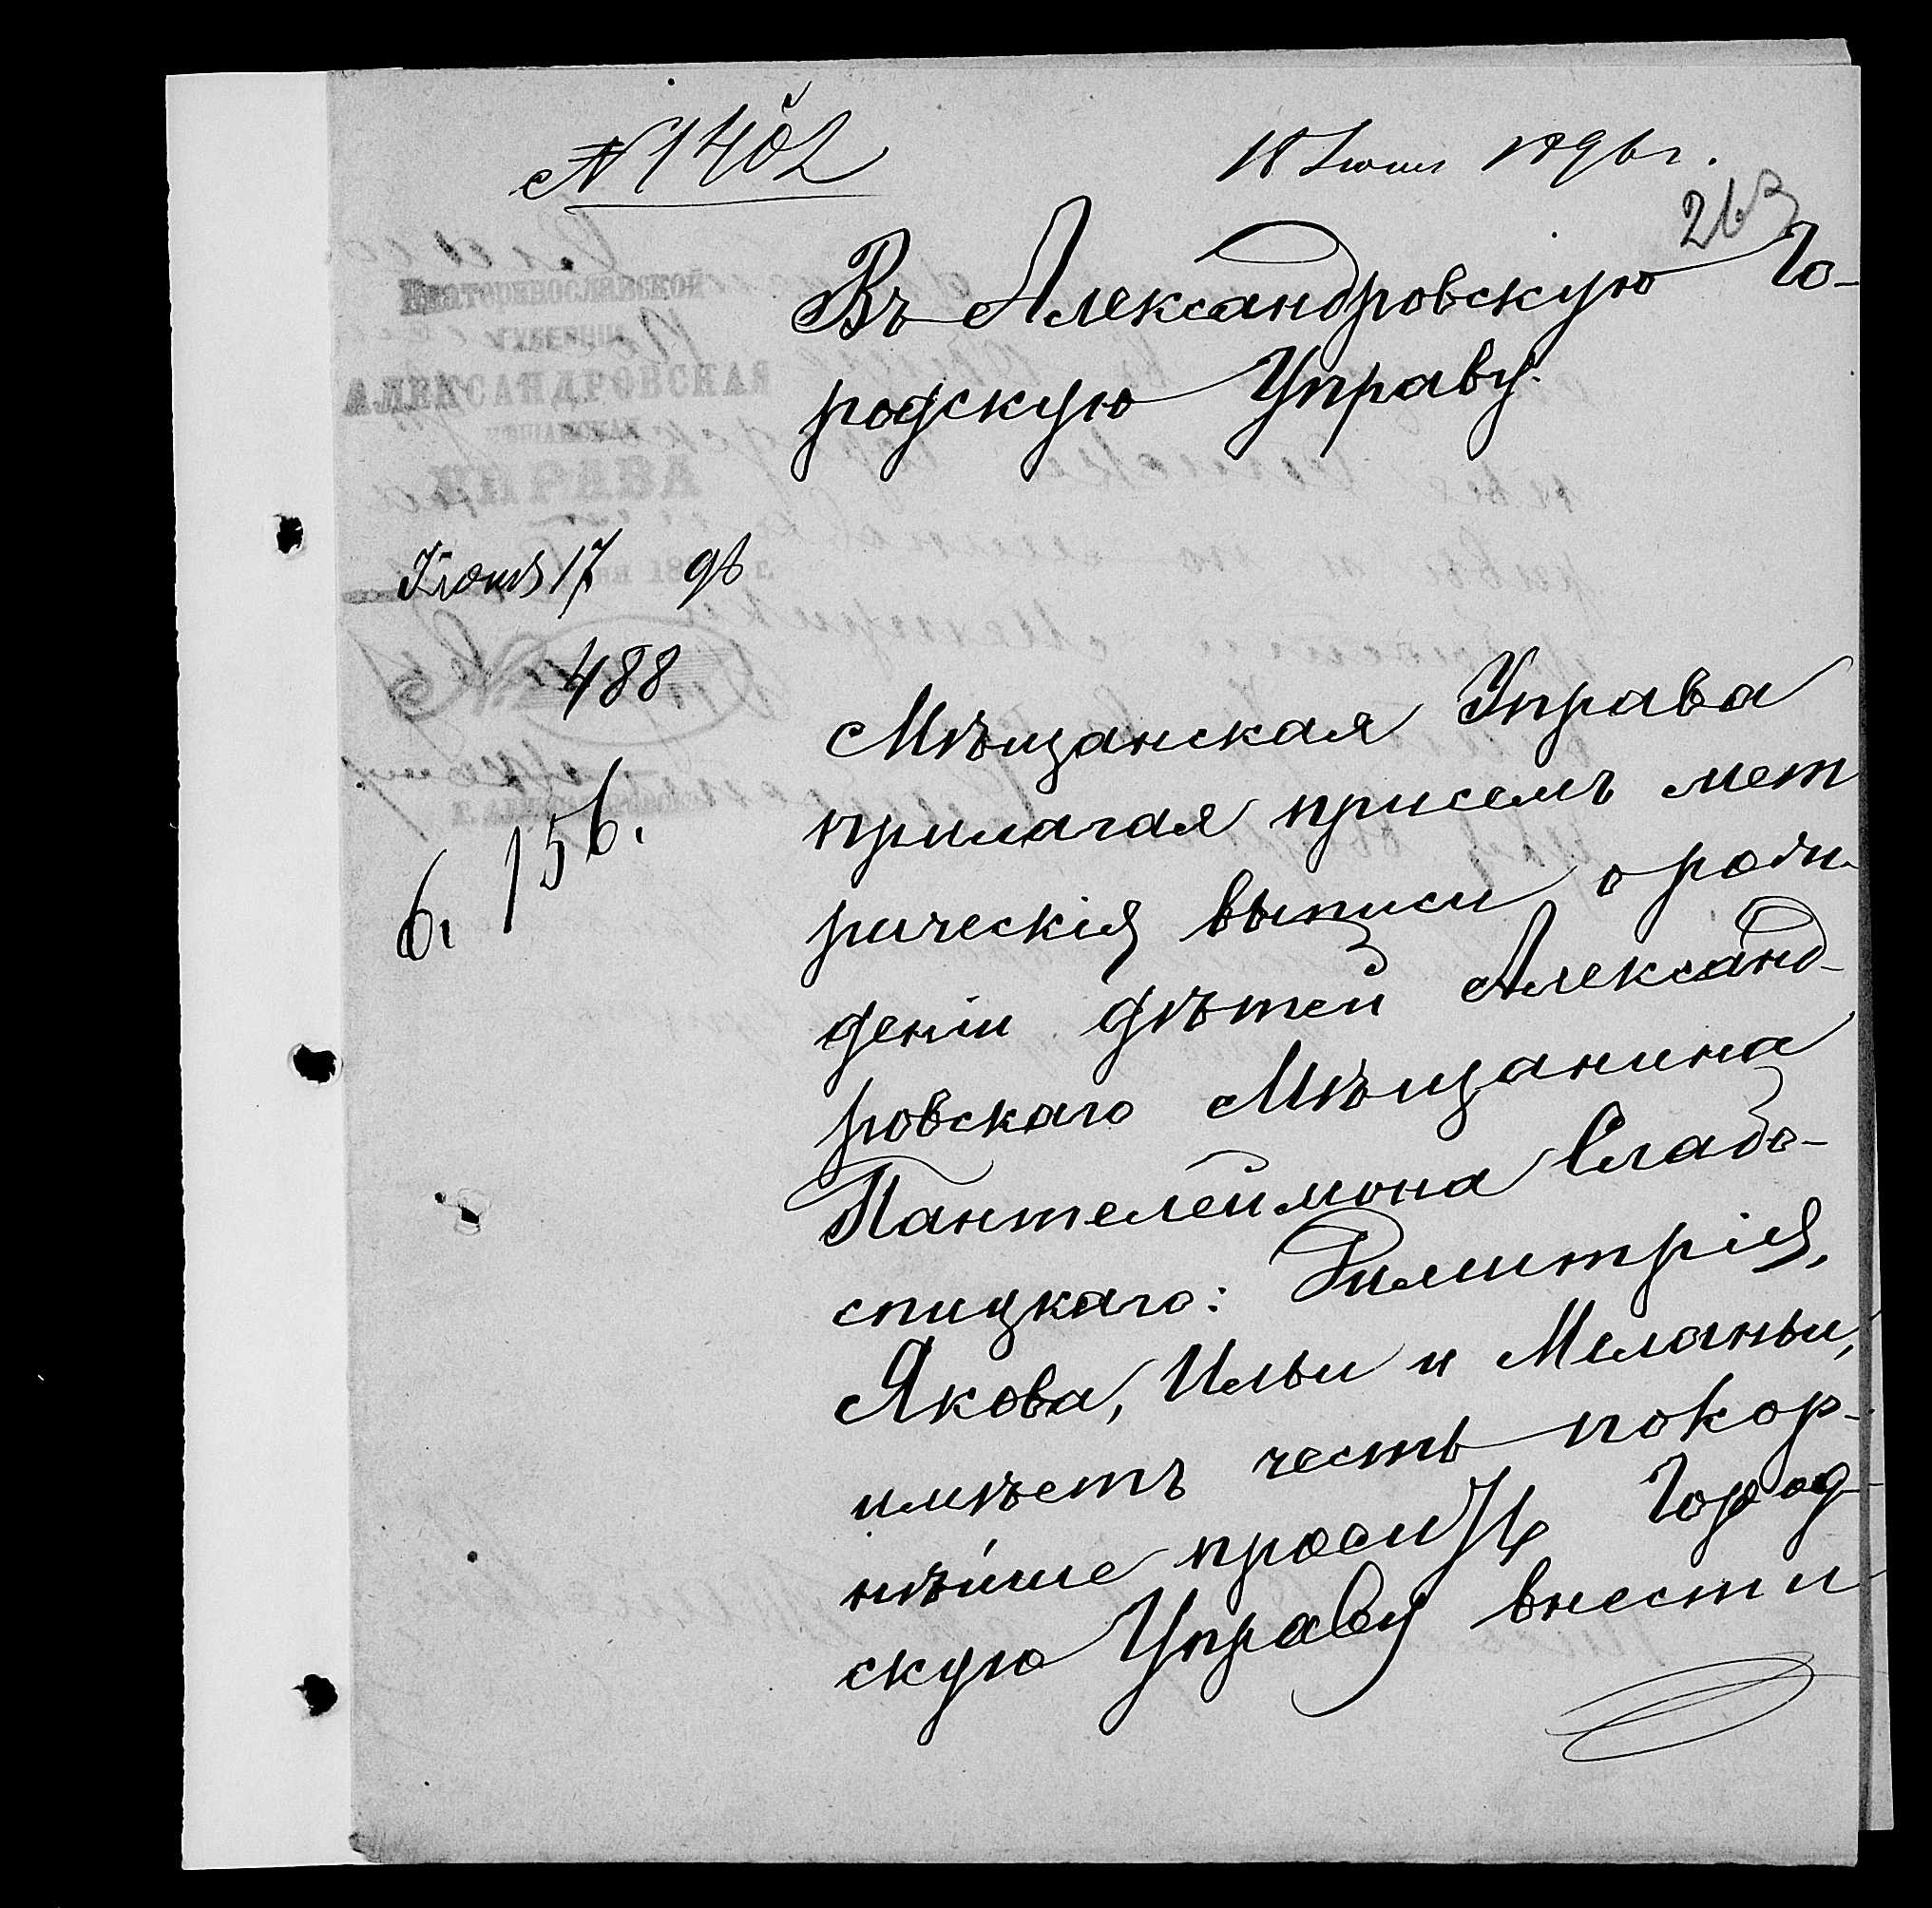 № 1402
18 Іюня 1896 г.
263
Въ Александровскую Го-
родскую Управу.
ЕКАТЕРИНОСЛАВСКОЙ
ГУБЕРНІИ
АЛЕКСАНДРОВСКАЯ
МѢЩАНСКАЯ
УПРАВА
Іюня 17 96
488
б. 156.
Мѣщанская Управа
прилагая присемъ мет
рическія выписи о рож-
деніи дѣтей Александ-
ровскаго Мѣщанина
Пантелеймона Слабо-
спицкаго: Димитрія,
Якова, Ильи и Меланьи,
имѣетъ честь покор-
нѣйше просить Город-
скую Управу внести